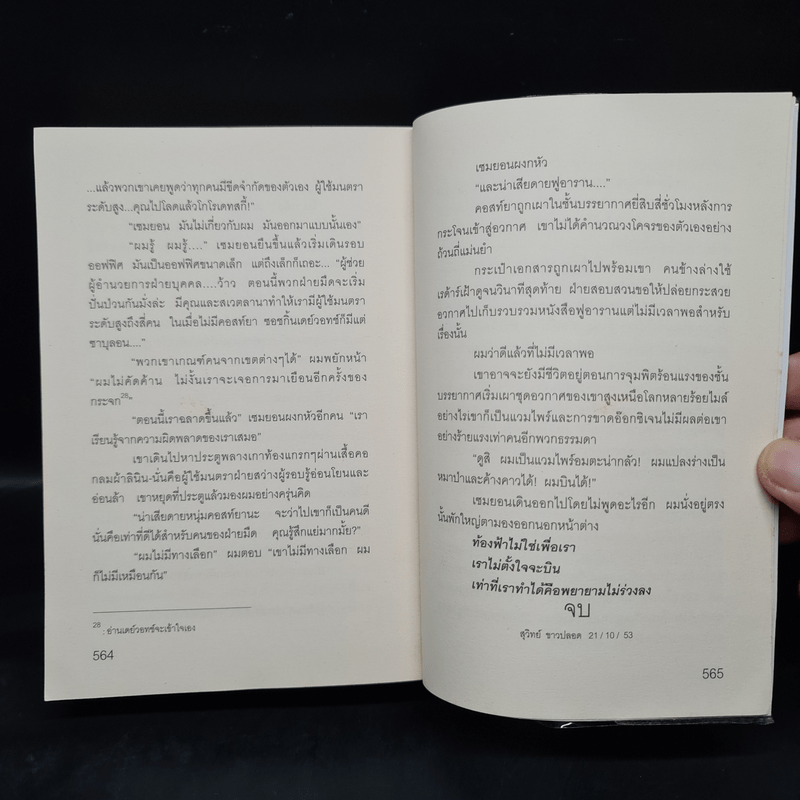 ...แล้วพวกเขาเคยพูดว่าทุกคนมีขีดจำกัดของตัวเอง ผู้ใช้มนตรา
ระดับสูง...คุณไปโลดแล้วโกโรเดทสกี้!"
"เซมยอน มันไม่เกี่ยวกับผม มันออกมาแบบนั้นเอง"
"ผมรู้ ผมรู้...." เซมยอนยืนขึ้นแล้วเริ่มเดินรอบ
ออฟฟิศ มันเป็นออฟฟิศขนาดเล็ก แต่ถึงเล็กก็เถอะ... "ผู้ช่วย
ผู้อำนวยการฝ่ายบุคคล....ว้าว ตอนนี้พวกฝ่ายมืดจะเริ่ม
ปั่นป่วนกันมั่งล่ะ มีคุณและสเวตลานาทำให้เรามีผู้ใช้มนตรา
ระดับสูงถึงสี่คน ในเมื่อไม่มีคอสท์ยา ซอซกิ้นเดย์วอทช์ก็มีแต่
ซาบุลอน...."
"พวกเขาเกณฑ์คนจากเขตต่างๆได้" ผมพยักหน้า
"ผมไม่คัดค้าน ไม่งั้นเราจะเจอการมาเยือนอีกครั้งของ
กระจก28"
"ตอนนี้เราฉลาดขึ้นแล้ว" เซมยอนผงกหัวอีกคน "เรา
เรียนรู้จากความผิดพลาดของเราเสมอ"
เขาเดินไปหาประตูพลางเกาท้องแกรกๆผ่านเสื้อคอ
กลมผ้าลินิน-นั่นคือผู้ใช้มนตราฝ่ายสว่างผู้รอบรู้อ่อนโยนและ
อ่อนล้า เขาหยุดที่ประตูแล้วมองผมอย่างครุ่นคิด
"น่าเสียดายหนุ่มคอสท์ยานะ จะว่าไปเขาก็เป็นคนดี
นั่นคือเท่าที่ดีได้สำหรับคนของฝ่ายมืด คุณรู้สึกแย่มากมั้ย?"
"ผมไม่มีทางเลือก" ผมตอบ "เขาไม่มีทางเลือก ผม
ก็ไม่มีเหมือนกัน"
28 : อ่านเดย์วอทช์จะเข้าใจเอง
564
เซมยอนผงกหัว
"และน่าเสียดายฟูอาราน...."
คอสท์ยาถูกเผาในชั้นบรรยากาศยี่สิบสี่ชั่วโมงหลังการ
กระโจนเข้าสู่อวกาศ เขาไม่ได้คำนวณวงโคจรของตัวเองอย่าง
ถ้วนถี่แม่นยำ
กระเป๋าเอกสารถูกเผาไปพร้อมเขา คนข้างล่างใช้
เรด้าร์เฝ้าดูจนวินาทีสุดท้าย ฝ่ายสอบสวนขอให้ปล่อยกระสวย
อวกาศไปเก็บรวบรวมหนังสือฟูอารานแต่ไม่มีเวลาพอสำหรับ
เรื่องนั้น
ผมว่าดีแล้วที่ไม่มีเวลาพอ
เขาอาจจะยังมีชีวิตอยู่ตอนการจุมพิตร้อนแรงของชั้น
บรรยากาศเริ่มเผาชุดอวกาศของเขาสูงเหนือโลกหลายร้อยไมล์
อย่างไรเขาก็เป็นแวมไพร์และการขาดอ๊อกซิเจนไม่มีผลต่อเขา
อย่างร้ายแรงเท่าคนอีกพวกธรรมดา
"ดูสิ ผมเป็นแวมไพร์อมตะน่ากลัว! ผมแปลงร่างเป็น
หมาป่าและค้างคาวได้! ผมบินได้!"
เซมยอนเดินออกไปโดยไม่พูดอะไรอีก ผมนั่งอยู่ตรง
นั้นพักใหญ่ตามองออกนอกหน้าต่าง
ท้องฟ้าไม่ใช่เพื่อเรา
เราไม่ตั้งใจจะบิน
เท่าที่เราทำได้คือพยายามไม่ร่วงลง
จบ
สุวิทย์ ขาวปลอด 21/10/53
565